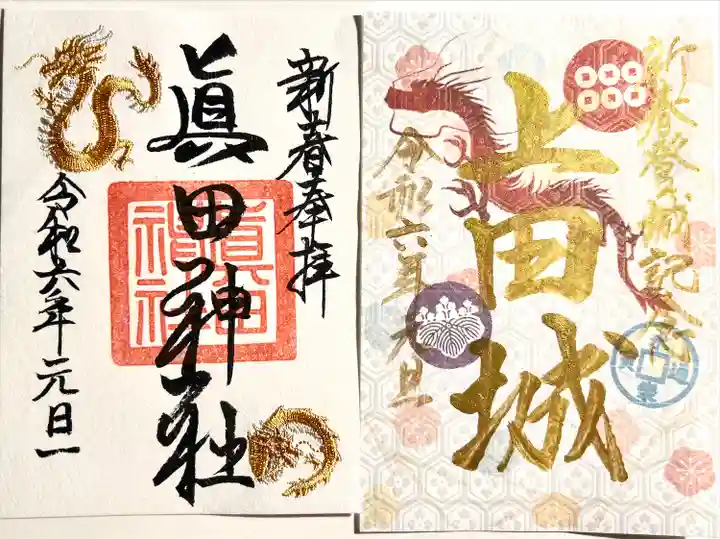 新春奉拝
眞田神社
眞田神社
令和六年元日一
新春登城記念
上田城
令和六年元旦